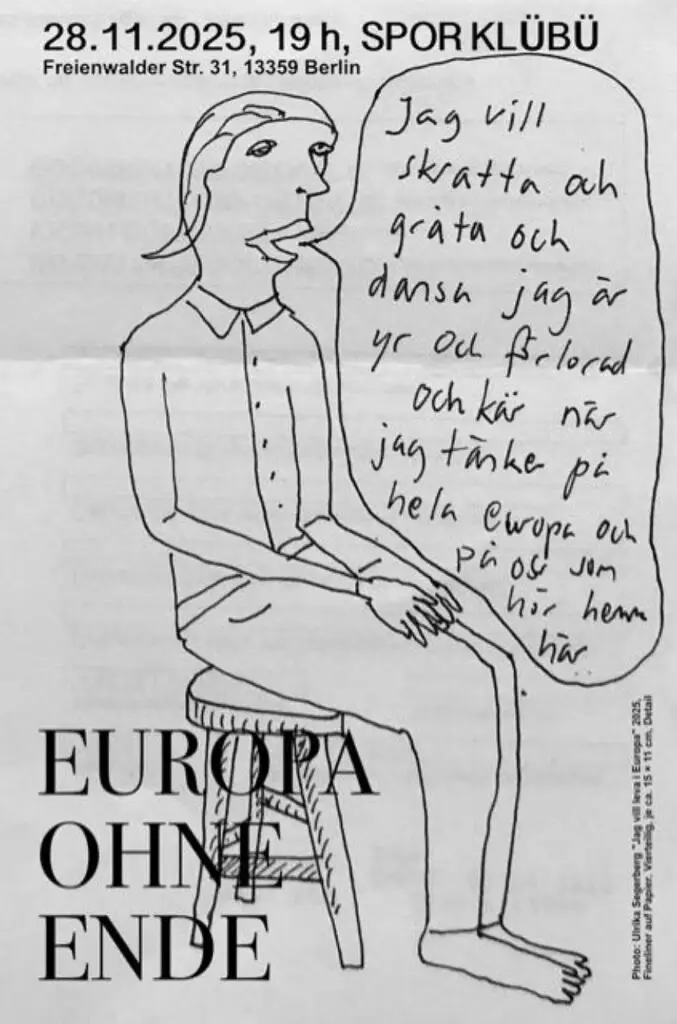 28.11.2025, 19 h, SPOR KLÜBÜ
Freienwalder Str. 31, 13359 Berlin
Jag vill
skratta och
gråta och
dansa jag är
yr och förlorad
och kär när
jag tänker på
hela Europa och
på oss som
hör hemma
här
EUROPA
OHNE
ENDE
Photo: Ulrika Segerberg "Jag vill leva i Europa" 2025,
Fineliner auf Papier, Vierteilig, je ca. 15 × 11 cm, Detail